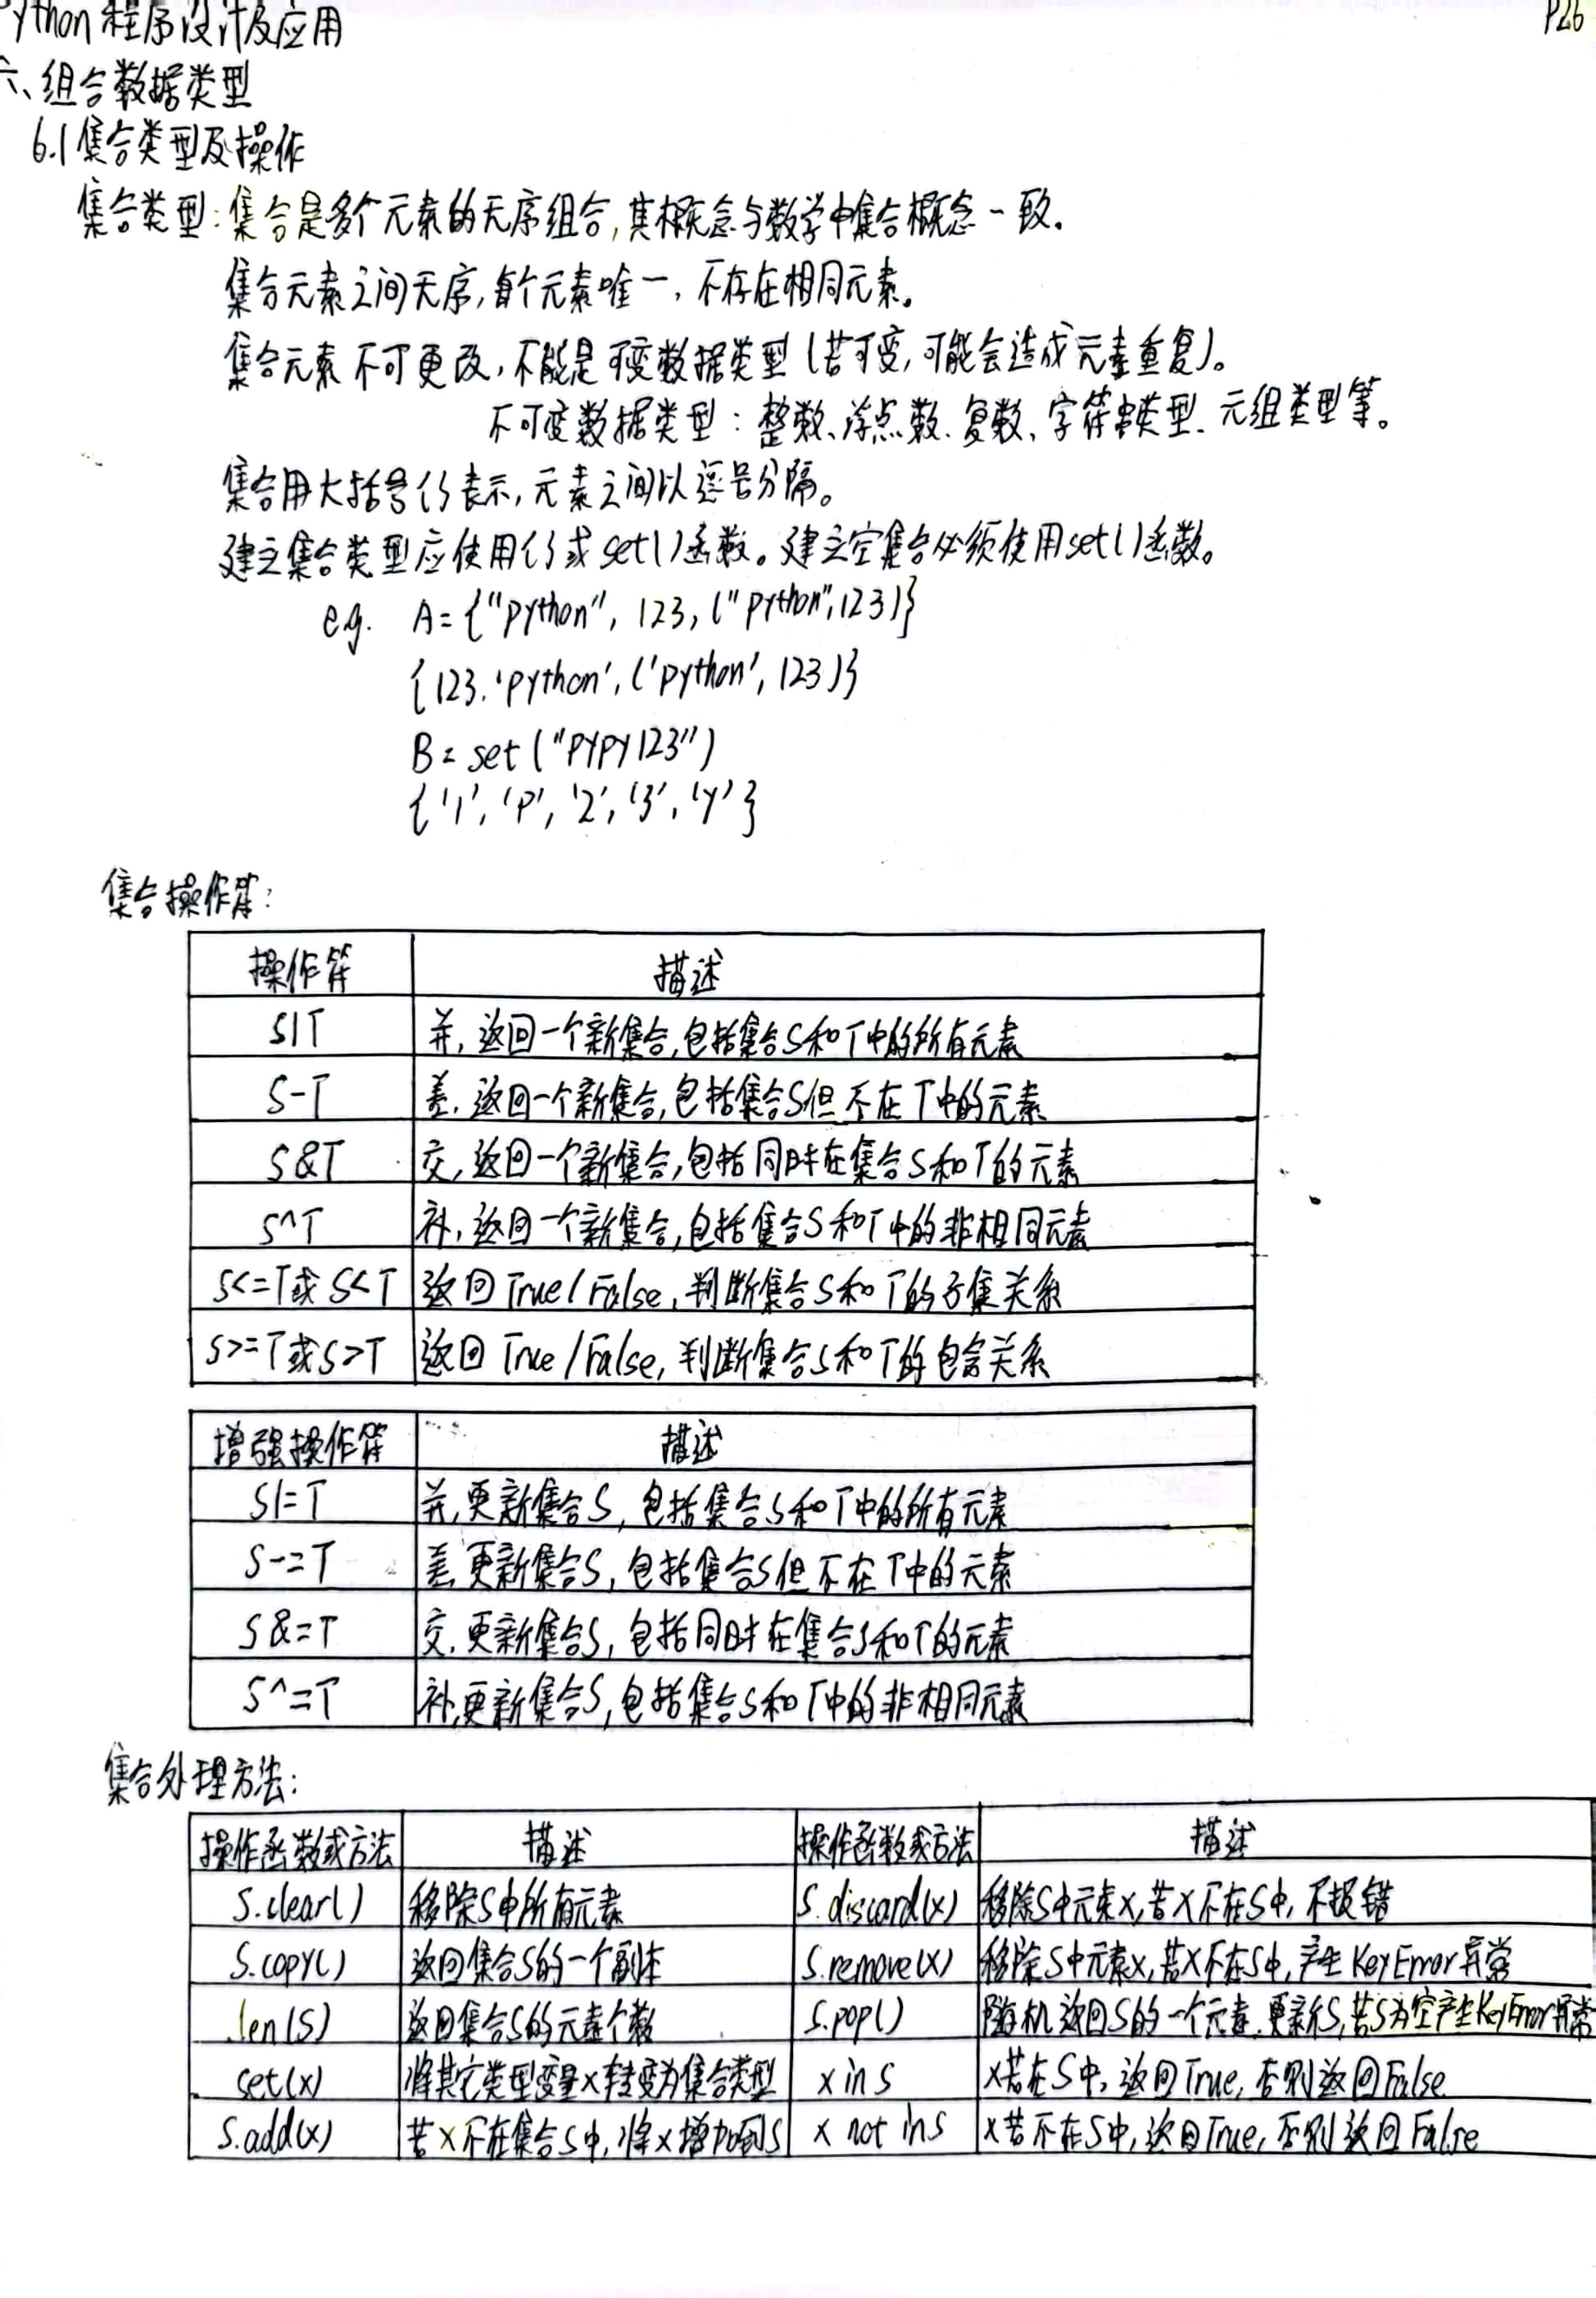 ython程序设计及应用 P26
六、组合数据类型
6.1集合类型及操作
集合类型:集合是多个元素的无序组合,其概念与数学中集合概念一致。
集合元素之间无序,每个元素唯一,不存在相同元素。
集合元素不可更改,不能是可变数据类型(若可变,可能会造成元素重复)。
不可变数据类型:整数、浮点数、复数、字符串类型、元组类型等。
集合用大括号{}表示,元素之间以逗号分隔。
建立集合类型应使用{}或set()函数。建立空集合必须使用set()函数。
e.g. A={"python", 123, ("python",123)}
{123,'python',('python',123)}
B=set("PYPY123")
{'1','P','2','3','Y'}
集合操作符:
操作符 描述
S|T 并,返回一个新集合,包括集合S和T中的所有元素
S-T 差,返回一个新集合,包括集合S但不在T中的元素
S&T 交,返回一个新集合,包括同时在集合S和T的元素
S^T 补,返回一个新集合,包括集合S和T中的非相同元素
S<=T或S<T 返回True/False,判断集合S和T的子集关系
S>=T或S>T 返回True/False,判断集合S和T的包含关系
增强操作符 描述
S|=T 并,更新集合S,包括集合S和T中的所有元素
S-=T 差,更新集合S,包括集合S但不在T中的元素
S&=T 交,更新集合S,包括同时在集合S和T的元素
S^=T 补,更新集合S,包括集合S和T中的非相同元素
集合处理方法:
操作函数或方法 描述 操作函数或方法 描述
S.clear() 移除S中所有元素 S.discard(x) 移除S中元素x,若x不在S中,不报错
S.copy() 返回集合S的一个副本 S.remove(x) 移除S中元素x,若x不在S中,产生KeyError异常
len(S) 返回集合S的元素个数 S.pop() 随机返回S的一个元素,更新S,若S为空产生KeyError异常
set(x) 将其它类型变量x转变为集合类型 x in S x若在S中,返回True,否则返回False
S.add(x) 若x不在集合S中,将x增加到S x not in S x若不在S中,返回True,否则返回False